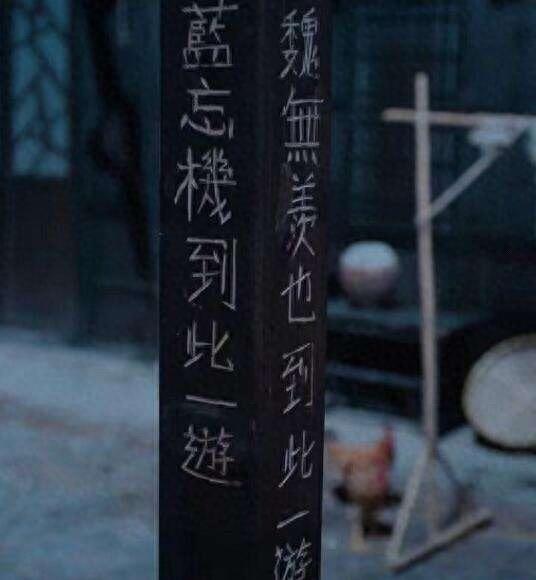 藍忘機到此一遊
魏無羨也到此一遊